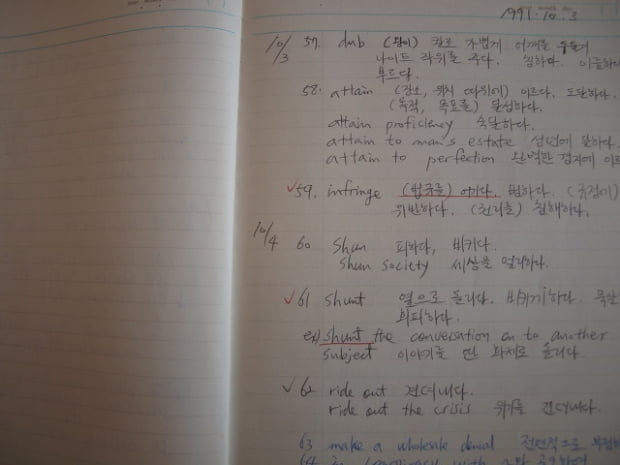 1991. 10. 3
10/3 57. dub (왕이) 칼로 가볍게 어깨를
나이트 작위를 주다. 칭하다.
부르다.
58. attain (장소, 위치 따위에) 이르다. 도달하다.
(목적, 목표를) 달성하다.
attain proficiency 숙달하다.
attain to man's estate 성년에 달하다.
attain to perfection 완벽한 경지에
✓59. infringe (법규를) 어기다. 범하다. (규정에)
위반하다. (권리를) 침해하다.
10/4 60 shun 피하다, 비키다.
shun society 세상을 멀리하다.
✓61 shunt 옆으로 돌리다. 비키게하다.
회피하다.
ex) shunt the conversation on to another
subject 이야기를 딴 화제로 돌리다.
✓62 ride out 견뎌내다.
ride out the crisis 위기를 견뎌내다.
63 make a wholesale denial 전면적으로
64